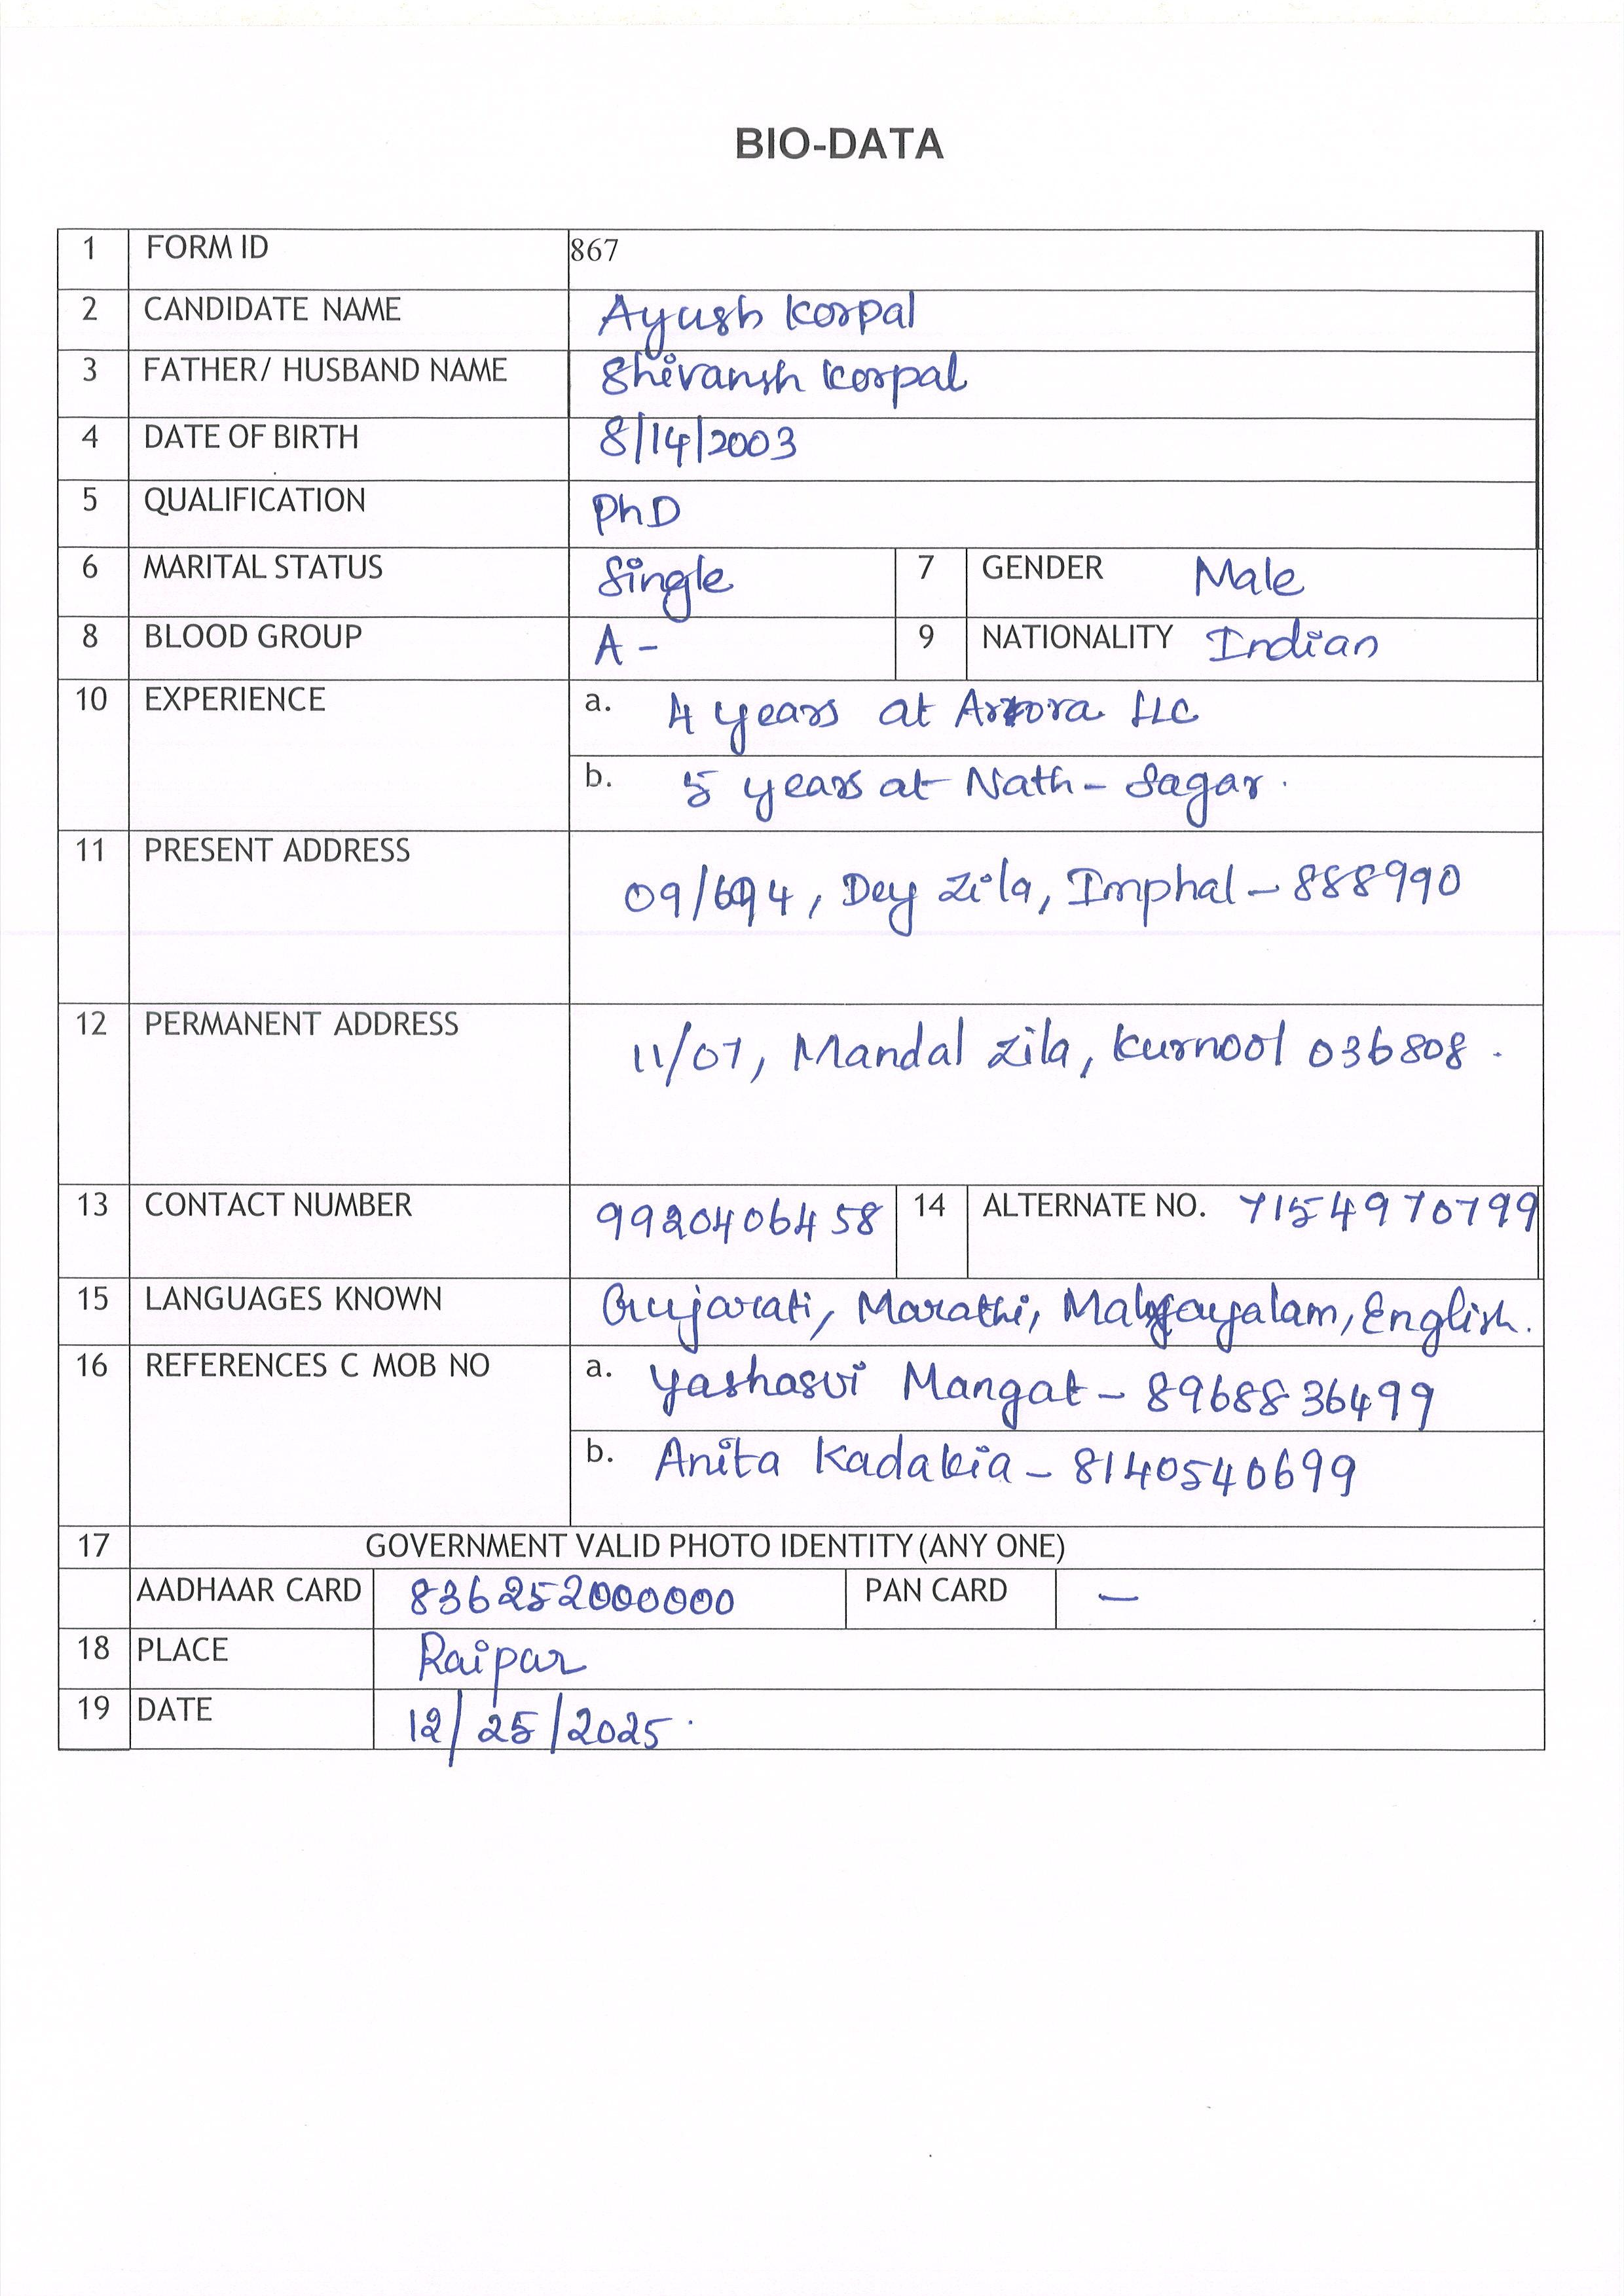 BIO-DATA
1 FORM ID 867
2 CANDIDATE NAME Ayush Korpal
3 FATHER/ HUSBAND NAME Shivansh Korpal
4 DATE OF BIRTH 8/14/2003
5 QUALIFICATION PhD
6 MARITAL STATUS Single 7 GENDER Male
8 BLOOD GROUP A - 9 NATIONALITY Indian
10 EXPERIENCE a. 4 years at Arora LLC
b. 5 years at Nath - Sagar.
11 PRESENT ADDRESS
09/694, Dey Zila, Imphal - 888990
12 PERMANENT ADDRESS
11/07, Mandal Zila, Kurnool 036808.
13 CONTACT NUMBER 9920406458 14 ALTERNATE NO. 7154970799
15 LANGUAGES KNOWN Gujarati, Marathi, Malayalam, English.
16 REFERENCES C MOB NO a. Yashasvi Mangat - 8968836499
b. Anita Kadakia - 8140540699
17 GOVERNMENT VALID PHOTO IDENTITY (ANY ONE)
AADHAAR CARD 836252000000 PAN CARD -
18 PLACE Raipar
19 DATE 12/25/2025.